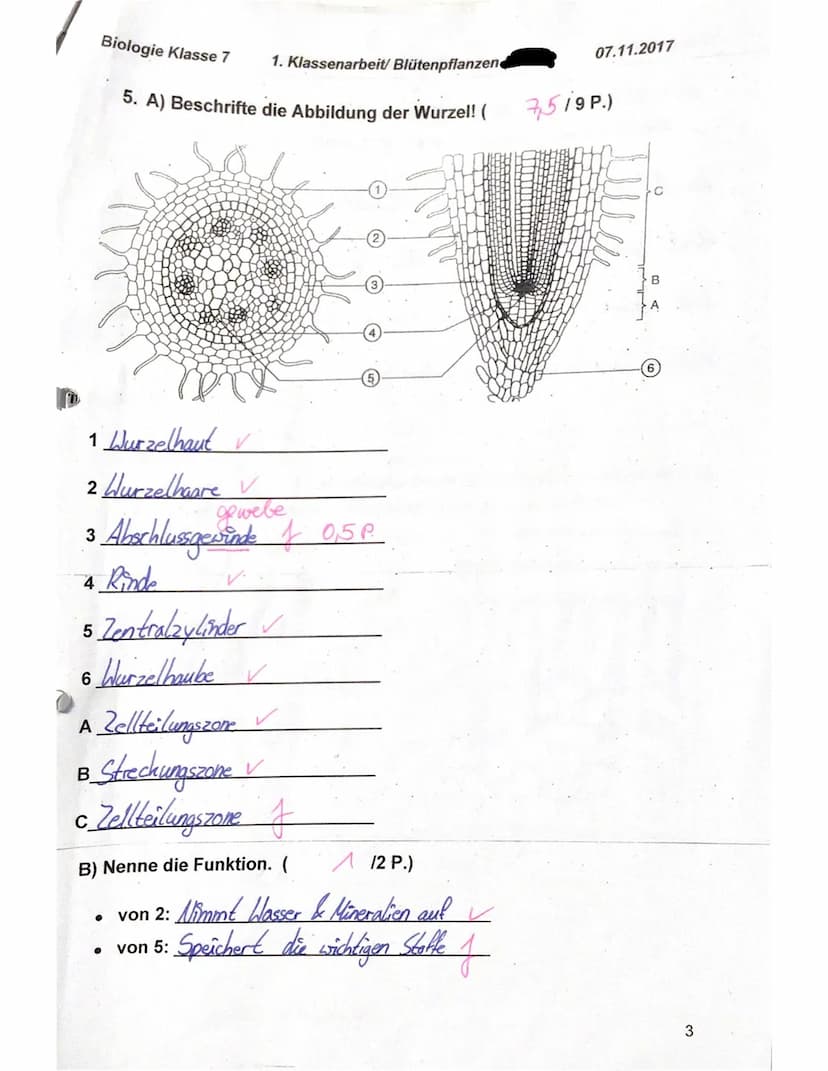 Biologie Klasse 7 1. Klassenarbeit/ Blütenpflanzen 07.11.2017
5. A) Beschrifte die Abbildung der Wurzel! ( 7,5 / 9 P.)
1
C
2
3
B
A
4
5
6
1 Wurzelhaut ✓
2 Wurzelhaare ✓
gewebe
3 Abschlussgewinde f 0,5 P.
4 Rinde ✓
5 Zentralzylinder ✓
6 Wurzelhaube ✓
A Zellteilungszone ✓
B Streckungszone ✓
C Zellteilungszone f
B) Nenne die Funktion. ( 1 /2 P.)
• von 2: Nimmt Wasser & Mineralien auf ✓
• von 5: Speichert die wichtigen Stoffe f
3